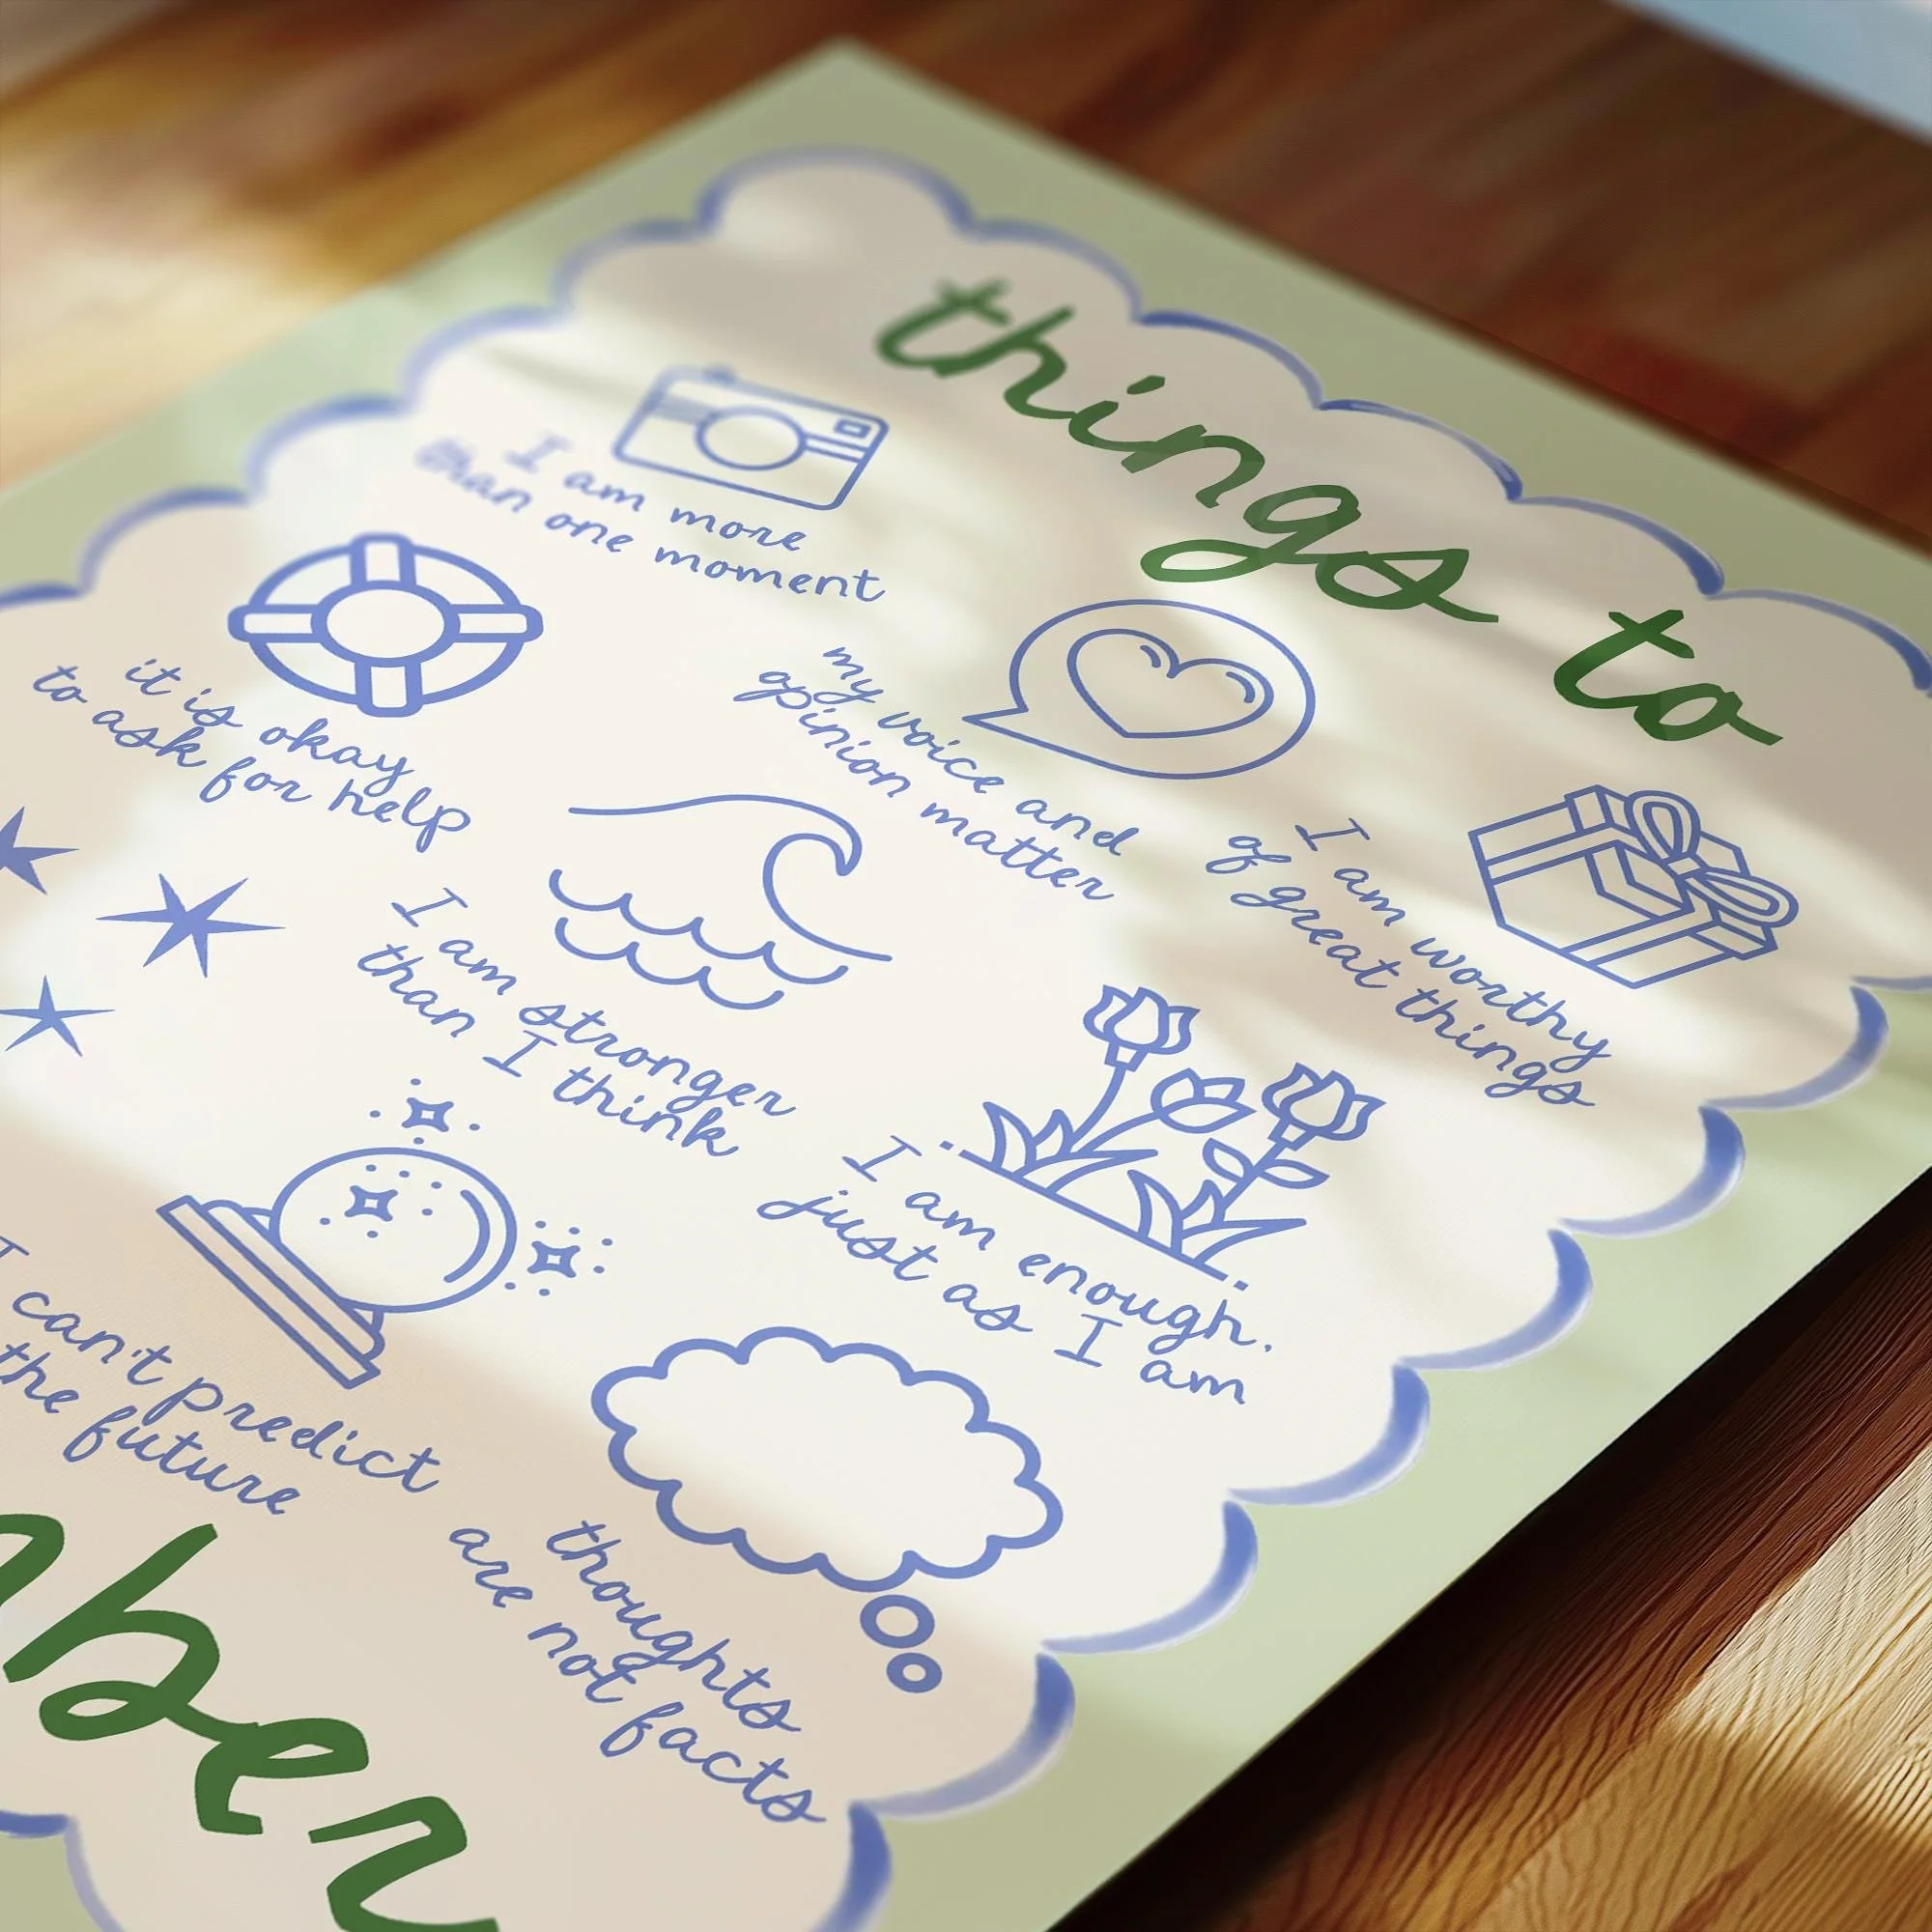 things to
I am more
than one moment
it is okay
to ask for help
my voice and
opinion matter
I am worthy
of great things
I am stronger
than I think
I am enough.
just as I am
I can't predict
the future
thoughts
are not facts
ber